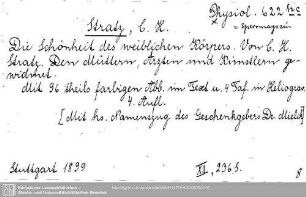 Physiol. 622 hc
= Sperrmagazin
Stratz, C. H.
Die Schönheit des weiblichen Körpers. Von C. H.
Stratz. Den Müttern, Ärzten und Künstlern ge-
widmet.
Mit 96 theils farbigen Abb. im Text u. 4 Taf. in Heliograv.
4. Aufl.
[Mit hs. Namenszug des Geschenkgebers Dr. Mielck]
Stuttgart 1899
XI, 236 S. 8
Staats- und Universitätsbibliothek Dresden